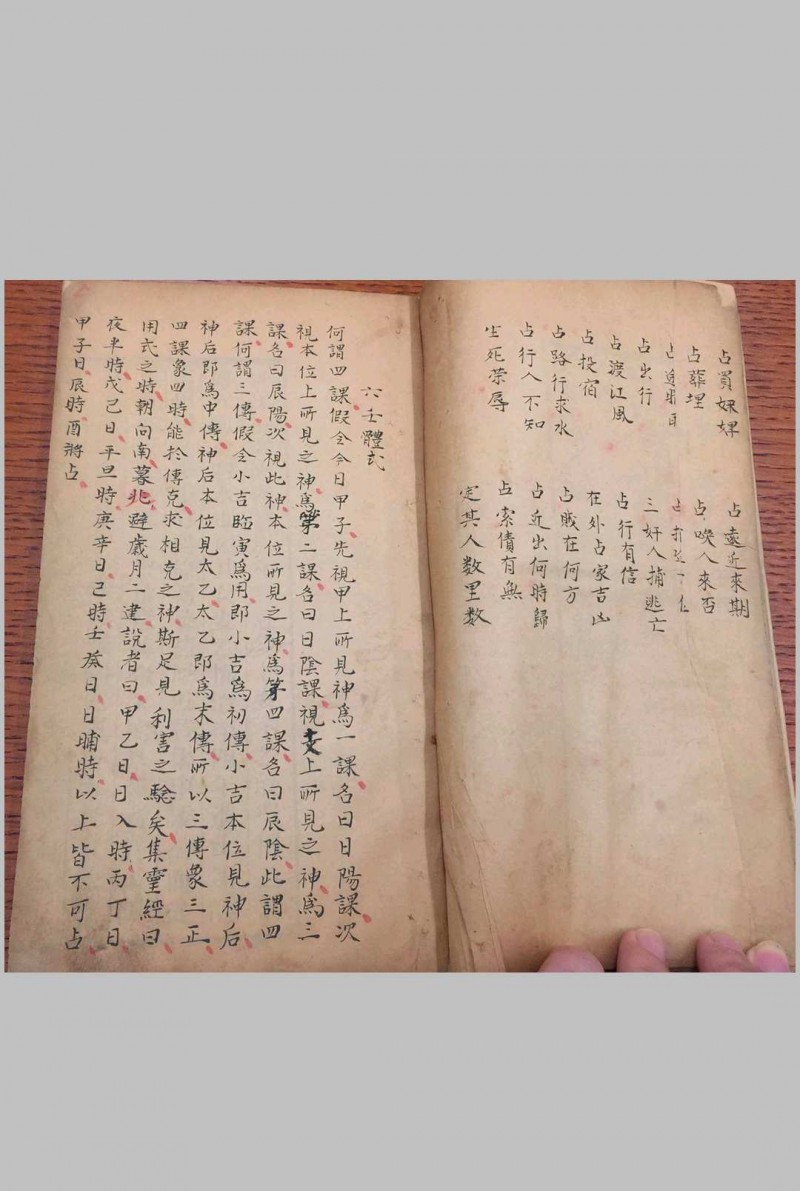 占買婢婢
占葬埋
占出行
占渡江風
占投宿
占路行求水
占行人不知
生死荣辱
占遠近来期
占喚人來否
三奸人捕逃亡
占行有信
在外占家吉凶
占贼在何方
占近出何時歸
占索債有無
定其人数里数
六壬體式
何謂四課假令今日甲子先視甲上所見神爲一課名曰日陽課次
視本位上所見之神爲第二課名曰日陰課視支上所見之神爲三
課名曰辰陽次視此神本位所見之神爲第四課名曰辰陰此謂四
課何謂三傳假令小吉臨寅爲用即小吉爲初傳小吉本位見神后
神后即爲中傳神后本位見太乙太乙即爲末傳所以三傳象三正
四課象四時能於傳克求相克之神斯足見利害之驗矣集靈經曰
用式之時朝向南暮北避歲月二建說者曰甲乙日日入時丙丁日
夜半時戊己日平旦時庚辛日巳時壬癸日日晡時以上皆不可占
甲子日辰時酉將占